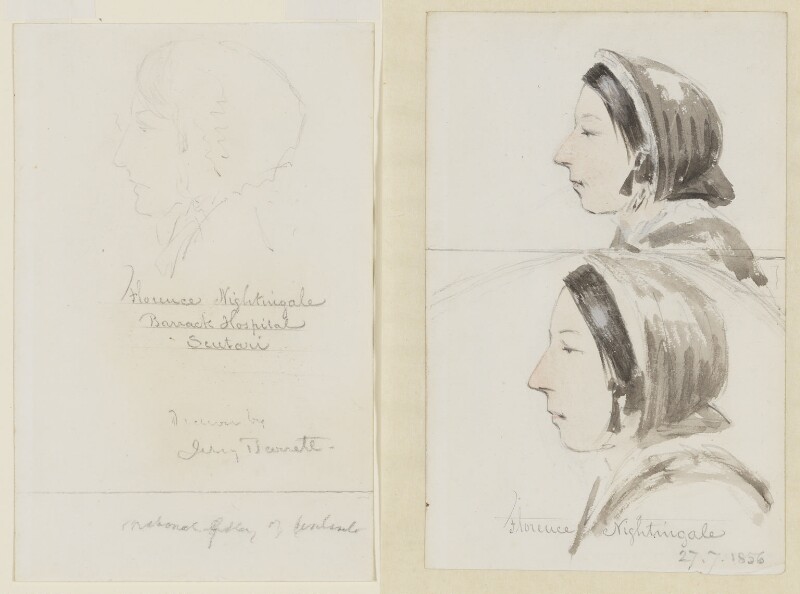 Florence Nightingale
Barrack Hospital
Scutari
Drawn by
Jerry Barrett
National Gallery of
Florence Nightingale
27.7.1856